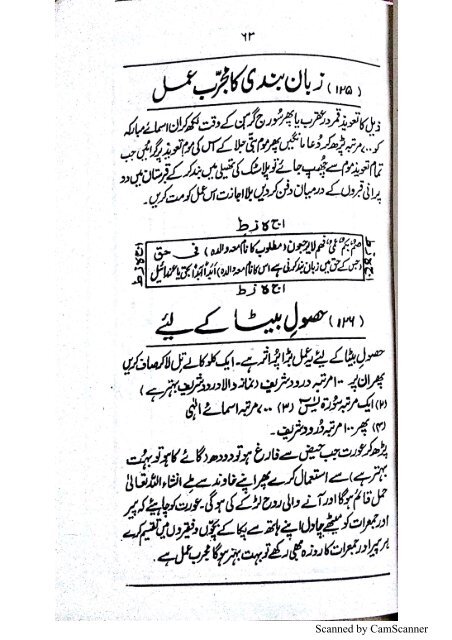 ۶۳
(۱۲۵) زبان بندی کا مجرّب عمل
ذیل کا تعویذ قمر در عقرب یا پھر سُورج گرہن کے وقت لکھ کر ان اسمائے مبارکہ
کو ۷۰۰ مرتبہ پڑھ کر دُعا مانگیں پھر موم بتی جلا کے اس کی موم تعویذ پر گرائیں جب
تمام تعویذ موم سے چھپ جائے تو پلاسٹک کی تھیلی میں بند کر کے قبرستان میں دو
پرانی قبروں کے درمیان دفن کر دیں بلا اجازت اس عمل کو مت کریں۔
ا ج ہ ز ط
صُمٌّ بُكْمٌ عُمْيٌ فهم لا يرجعون (مطلوب کا نام معہ والدہ) فی حق
(جس کے حق میں زبان بند کرنی ہے اس کا نام معہ والدہ) اَبَدًا اَبَدًا بحق یا
ا ج ہ ز ط
(۱۲۶) حصولِ بیٹا کے لیئے
حصول بیٹا کے لیئے یہ عمل بڑا پُر اثر ہے۔ ایک کلو کالے تِل لا کر صاف کریں
پھر ان پر ۱۰۰ مرتبہ درود شریف (نماز والا درود شریف بہتر ہے)
(۲) ایک مرتبہ سُورہ یٰسٓ (۳) ۷۰۰ مرتبہ اسمائے الٰہی
(۴) پھر ۱۰۰ مرتبہ دُرود شریف۔
پڑھ کر عورت جب حیض سے فارغ ہو تو دودھ (گائے کا ہو تو بہت
بہتر ہے) سے استعمال کرے پھر اپنے خاوند سے ملے انشاء اللہ تعالیٰ
حمل قائم ہو گا اور آنے والی روح لڑکے کی ہو گی۔ عورت کو چاہیئے کہ پیر
اور جمعرات کو میٹھے چاول اپنے ہاتھ سے پکا کے بچّوں و فقیروں میں تقسیم کرے
ہر پیر اور جمعرات کا روزہ بھی رکھے تو بہت بہتر ہو گا مجرب عمل ہے۔
Scanned by CamScanner